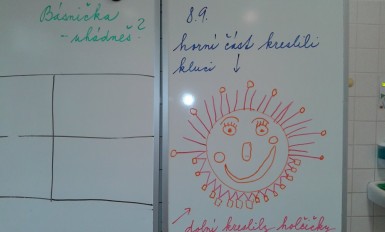 Básnička
- uhádneš?
8.9.
horní část kreslili
kluci
dolní kreslily holčičky